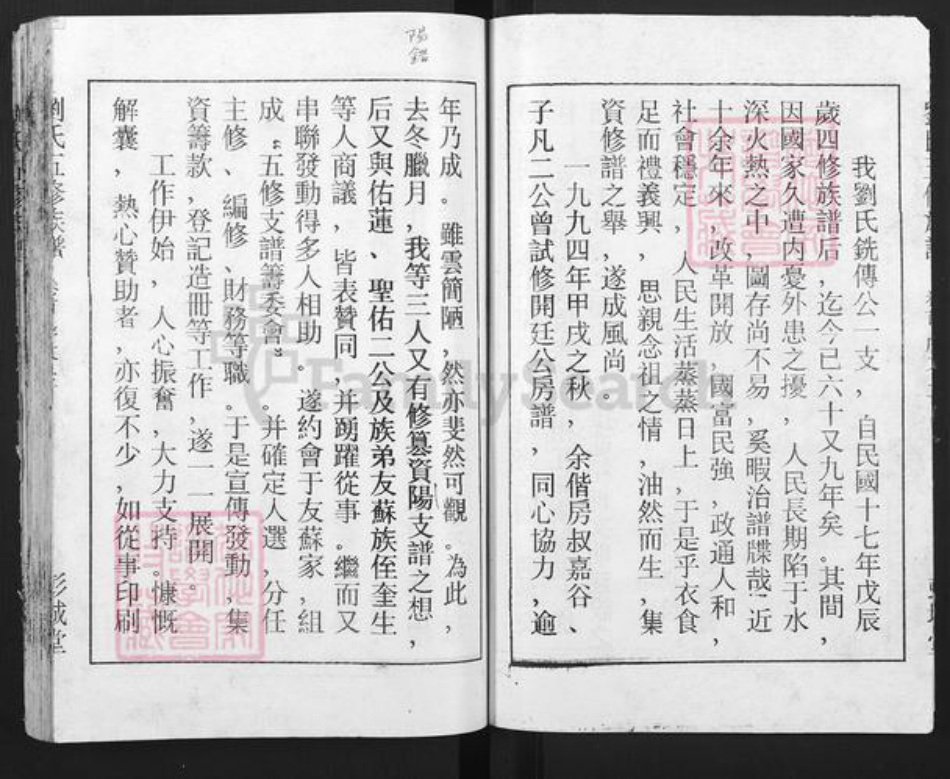 我劉氏銑傳公一支，自民國十七年戊辰
歲四修族譜后，迄今已六十又九年矣。其間，
因國家久遭内憂外患之擾，人民長期陷于水
深火熱之中，圖存尚不易，奚暇治譜牒哉？近
十余年來，改革開放，國富民強，政通人和，
社會穩定，人民生活蒸蒸日上，于是乎衣食
足而禮義興，思親念祖之情，油然而生，集
資修譜之舉，遂成風尚。
一九九四年甲戌之秋，余偕房叔嘉谷、
子凡二公曾試修開廷公房譜，同心協力，逾
陽
錯
年乃成。雖雲簡陋，然亦斐然可觀。為此，
去冬臘月，我等三人又有修篡資陽支譜之想，
后又與佑蓮、聖佑二公及族弟友蘇族侄奎生
等人商議，皆表贊同，并踴躍從事。繼而又
串聯發動得多人相助。遂約會于友蘇家，組
成“五修支譜籌委會”。并確定人選，分任
主修、編修、財務等職。于是宣傳發動，集
資籌款，登記造冊等工作，遂一一展開。
工作伊始，人心振奮，大力支持。慷慨
解囊，熱心贊助者，亦復不少，如從事印刷
劉氏五修族譜
彭城堂
FamilySearch